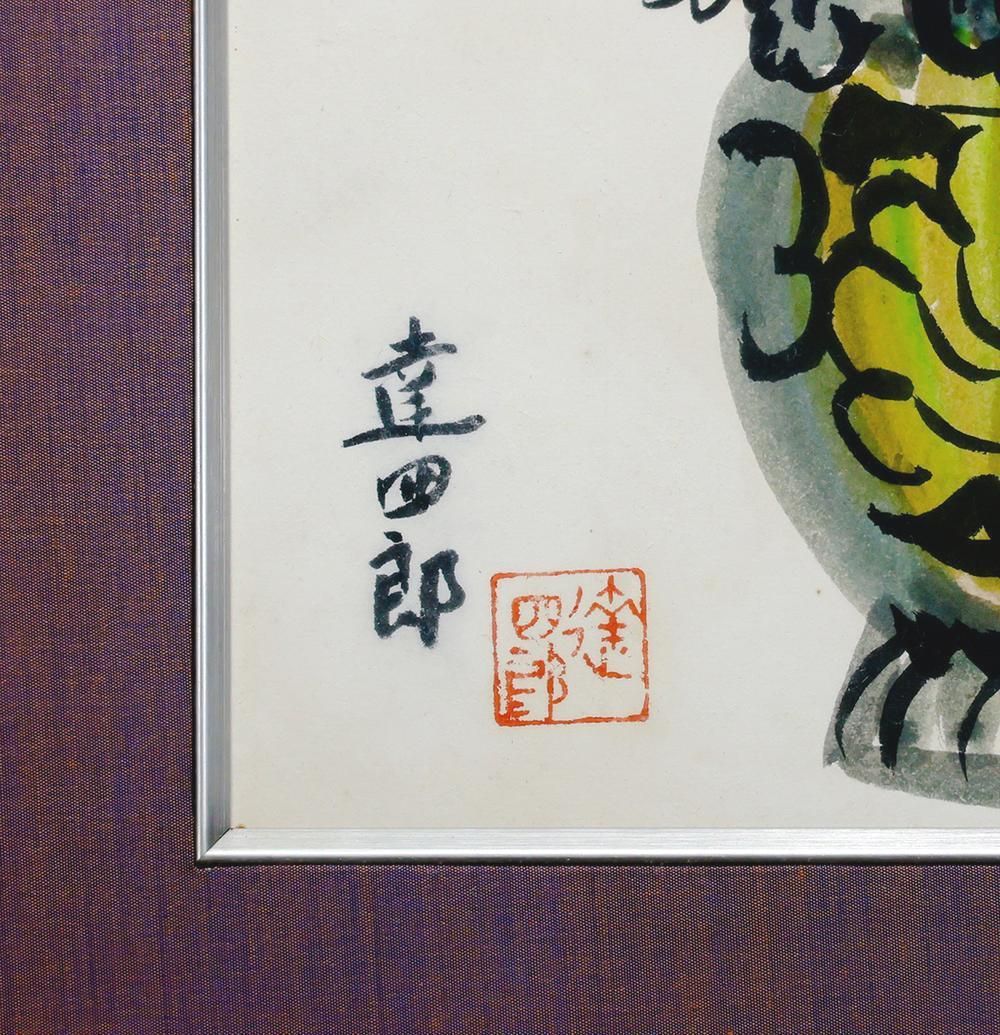 達四郎
達四郎